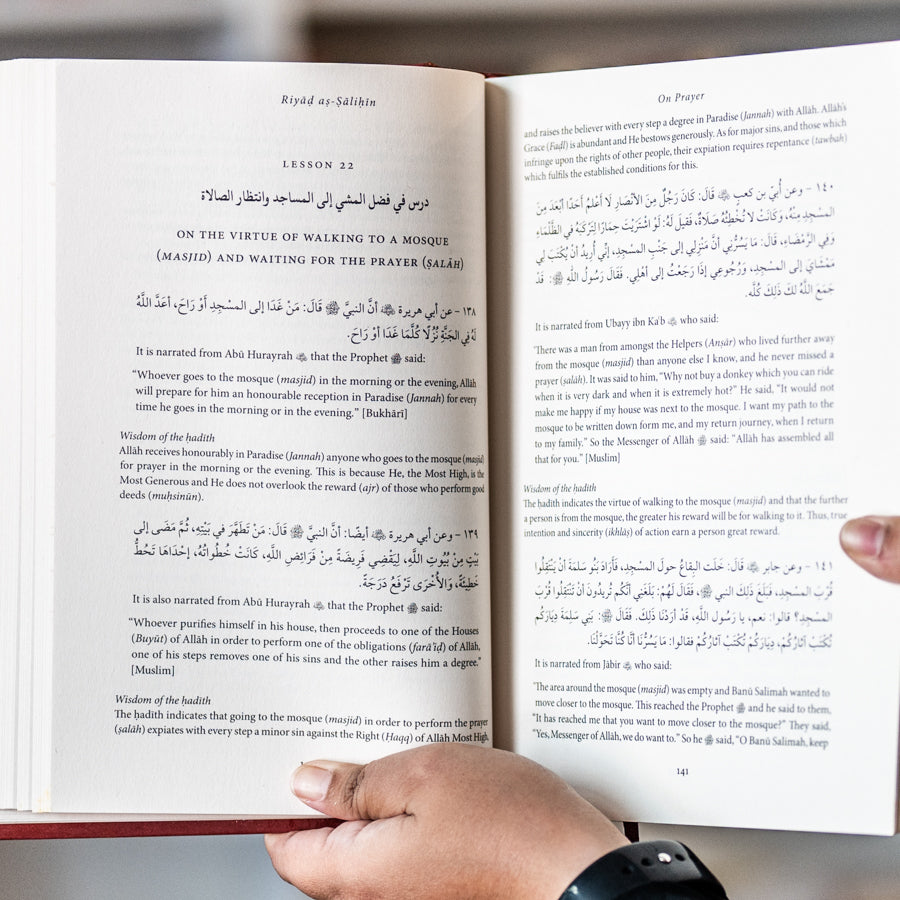 Riyāḍ aṣ-Ṣāliḥīn
LESSON 22
درس في فضل المشي إلى المساجد وانتظار الصلاة
ON THE VIRTUE OF WALKING TO A MOSQUE
(MASJID) AND WAITING FOR THE PRAYER (ṢALĀH)
١٣٨ – عن أبي هريرة ﷺ أنَّ النبيَّ ﷺ قَالَ: مَنْ غَدَا إلى المسْجِدِ أَوْ رَاحَ، أعَدَّ اللَّهُ
لَهُ في الجَنَّةِ نُزُلًا كُلَّمَا غَدَا أوْ رَاحَ.
It is narrated from Abū Hurayrah that the Prophet ﷺ said:
“Whoever goes to the mosque (masjid) in the morning or the evening, Allāh
will prepare for him an honourable reception in Paradise (Jannah) for every
time he goes in the morning or in the evening.” [Bukhārī]
Wisdom of the ḥadīth
Allāh receives honourably in Paradise (Jannah) anyone who goes to the mosque (masjid)
for prayer in the morning or the evening. This is because He, the Most High, is the
Most Generous and He does not overlook the reward (ajr) of those who perform good
deeds (muḥsinūn).
١٣٩ – وعن أبي هريرة أيضًا: أنَّ النبيَّ ﷺ قَالَ: مَنْ تَطَهَّرَ في بَيْتِهِ، ثُمَّ مَضَى إلى
بَيْتٍ مِنْ بُيُوتِ اللَّهِ، لِيَقْضِي فَرِيضَةً مِنْ فَرَائِضِ اللَّهِ، كَانَتْ خُطُواتُهُ، إحْدَاهَا تَحُطُّ
خَطِيئَةً، وَالأُخْرَى تَرْفَعُ دَرَجَةً.
It is also narrated from Abū Hurayrah that the Prophet ﷺ said:
“Whoever purifies himself in his house, then proceeds to one of the Houses
(Buyūt) of Allāh in order to perform one of the obligations (farā’iḍ) of Allāh,
one of his steps removes one of his sins and the other raises him a degree.”
[Muslim]
Wisdom of the ḥadīth
The ḥadīth indicates that going to the mosque (masjid) in order to perform the prayer
(ṣalāh) expiates with every step a minor sin against the Right (Ḥaqq) of Allāh Most High,
On Prayer
and raises the believer with every step a degree in Paradise (Jannah) with Allāh. Allāh’s
Grace (Faḍl) is abundant and He bestows generously. As for major sins, and those which
infringe upon the rights of other people, their expiation requires repentance (tawbah)
which fulfils the established conditions for this.
١٤٠ – وعن أُبيّ بن كعبٍ قَالَ: كَانَ رَجُلٌ مِنَ الأنْصَارِ لَا أعْلمُ أحَدًا أبْعَدَ مِنَ
المسْجِدِ مِنْهُ، وَكَانَتْ لَا تُخْطِئُهُ صَلَاةٌ، فَقيلَ لَهُ: لَوْ اشْتَرَيْتَ حِمَارًا لِتَرْكَبَهُ في الظَّلْمَاءِ
وَفي الرَّمْضَاءِ، قَالَ: مَا يَسُرُّنِي أنَّ مَنْزِلِي إلى جَنْبِ المسْجِدِ، إنِّي أُرِيدُ أنْ يُكْتَبَ لِي
مَمْشَايَ إلى المسْجِدِ، وَرُجُوعِي إذَا رَجَعْتُ إلى أهْلِي. فَقَالَ رَسُولُ اللَّهِ ﷺ: قَدْ
جَمَعَ اللَّهُ لكَ ذَلِكَ كُلَّه.
It is narrated from Ubayy ibn Ka‘b who said:
‘There was a man from amongst the Helpers (Anṣār) who lived further away
from the mosque (masjid) than anyone else I know, and he never missed a
prayer (ṣalāh). It was said to him, “Why not buy a donkey which you can ride
when it is very dark and when it is extremely hot?” He said, “It would not
make me happy if my house was next to the mosque. I want my path to the
mosque to be written down form me, and my return journey, when I return
to my family.” So the Messenger of Allāh ﷺ said: “Allāh has assembled all
that for you.” [Muslim]
Wisdom of the ḥadīth
The ḥadīth indicates the virtue of walking to the mosque (masjid) and that the further
a person is from the mosque, the greater his reward will be for walking to it. Thus, true
intention and sincerity (ikhlāṣ) of action earn a person great reward.
١٤١ – وعن جابر قَالَ: خَلَت البِقاعُ حولَ المسْجِدِ، فَأرَادَ بَنُو سَلِمَةَ أنْ يَنْتَقِلُوا
قُرْبَ المسْجِدِ، فَبَلَغَ ذَلِكَ النبي ﷺ، فَقَالَ لَهُمْ: بَلَغَنِي أنَّكُم تُرِيدُونَ أنْ تَنْتَقِلُوا قُرْبَ
المسْجِدِ؟ قالوا: نعم، يا رَسُول اللَّهِ، قَدْ أرَدْنَا ذَلِكَ. فَقَالَ ﷺ: بَنِي سَلِمَةَ دِيَارَكُم
تُكْتَبْ آثَارُكُمْ، دِيَارَكُمْ تُكْتَبْ آثَارُكُمْ فقالوا: مَا يَسُرُّنَا أنَّا كُنَّا تَحَوَّلْنَا.
It is narrated from Jābir who said:
‘The area around the mosque (masjid) was empty and Banū Salimah wanted to
move closer to the mosque. This reached the Prophet ﷺ and he said to them,
“It has reached me that you want to move closer to the mosque?” They said,
“Yes, Messenger of Allāh, we do want to.” So he ﷺ said, “O Banū Salimah, keep
141